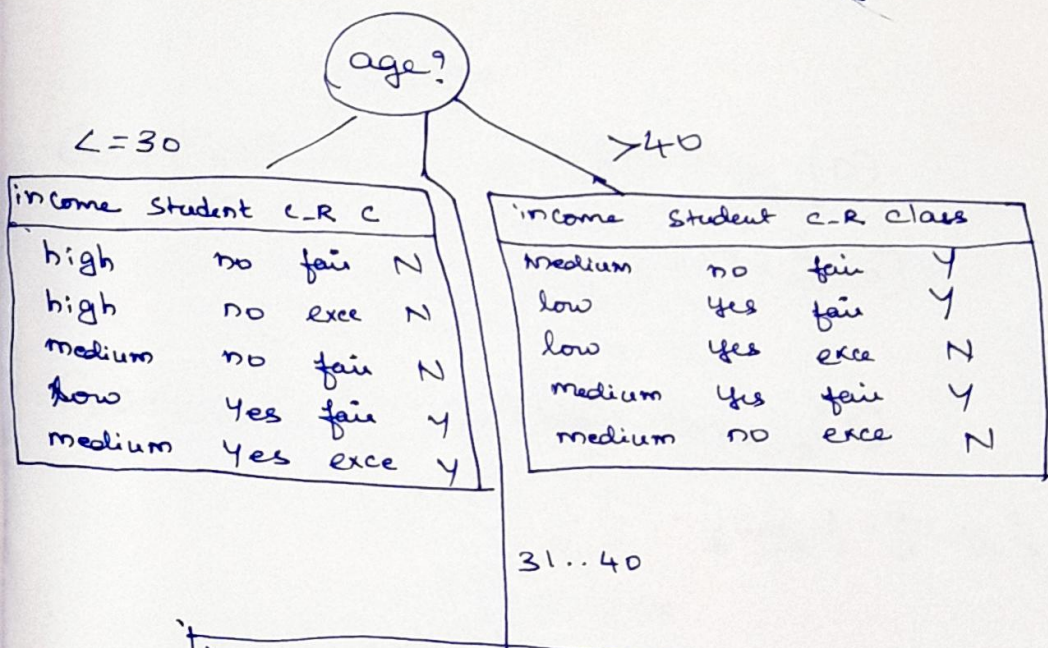 age?
<=30
>40
income Student C_R C
high no fair N
high no exce N
medium no fair N
low Yes fair Y
medium Yes exce Y
income Student C_R Class
Medium no fair Y
low yes fair Y
low yes exce N
medium yes fair Y
medium no exce N
31..40